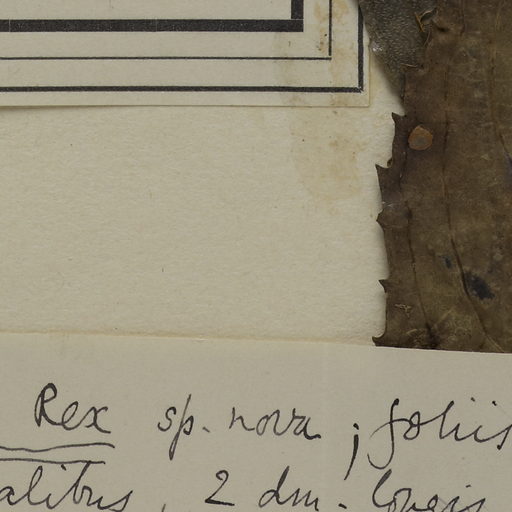 Rex sp. nova ; foliis
alibus, 2 dm. longis